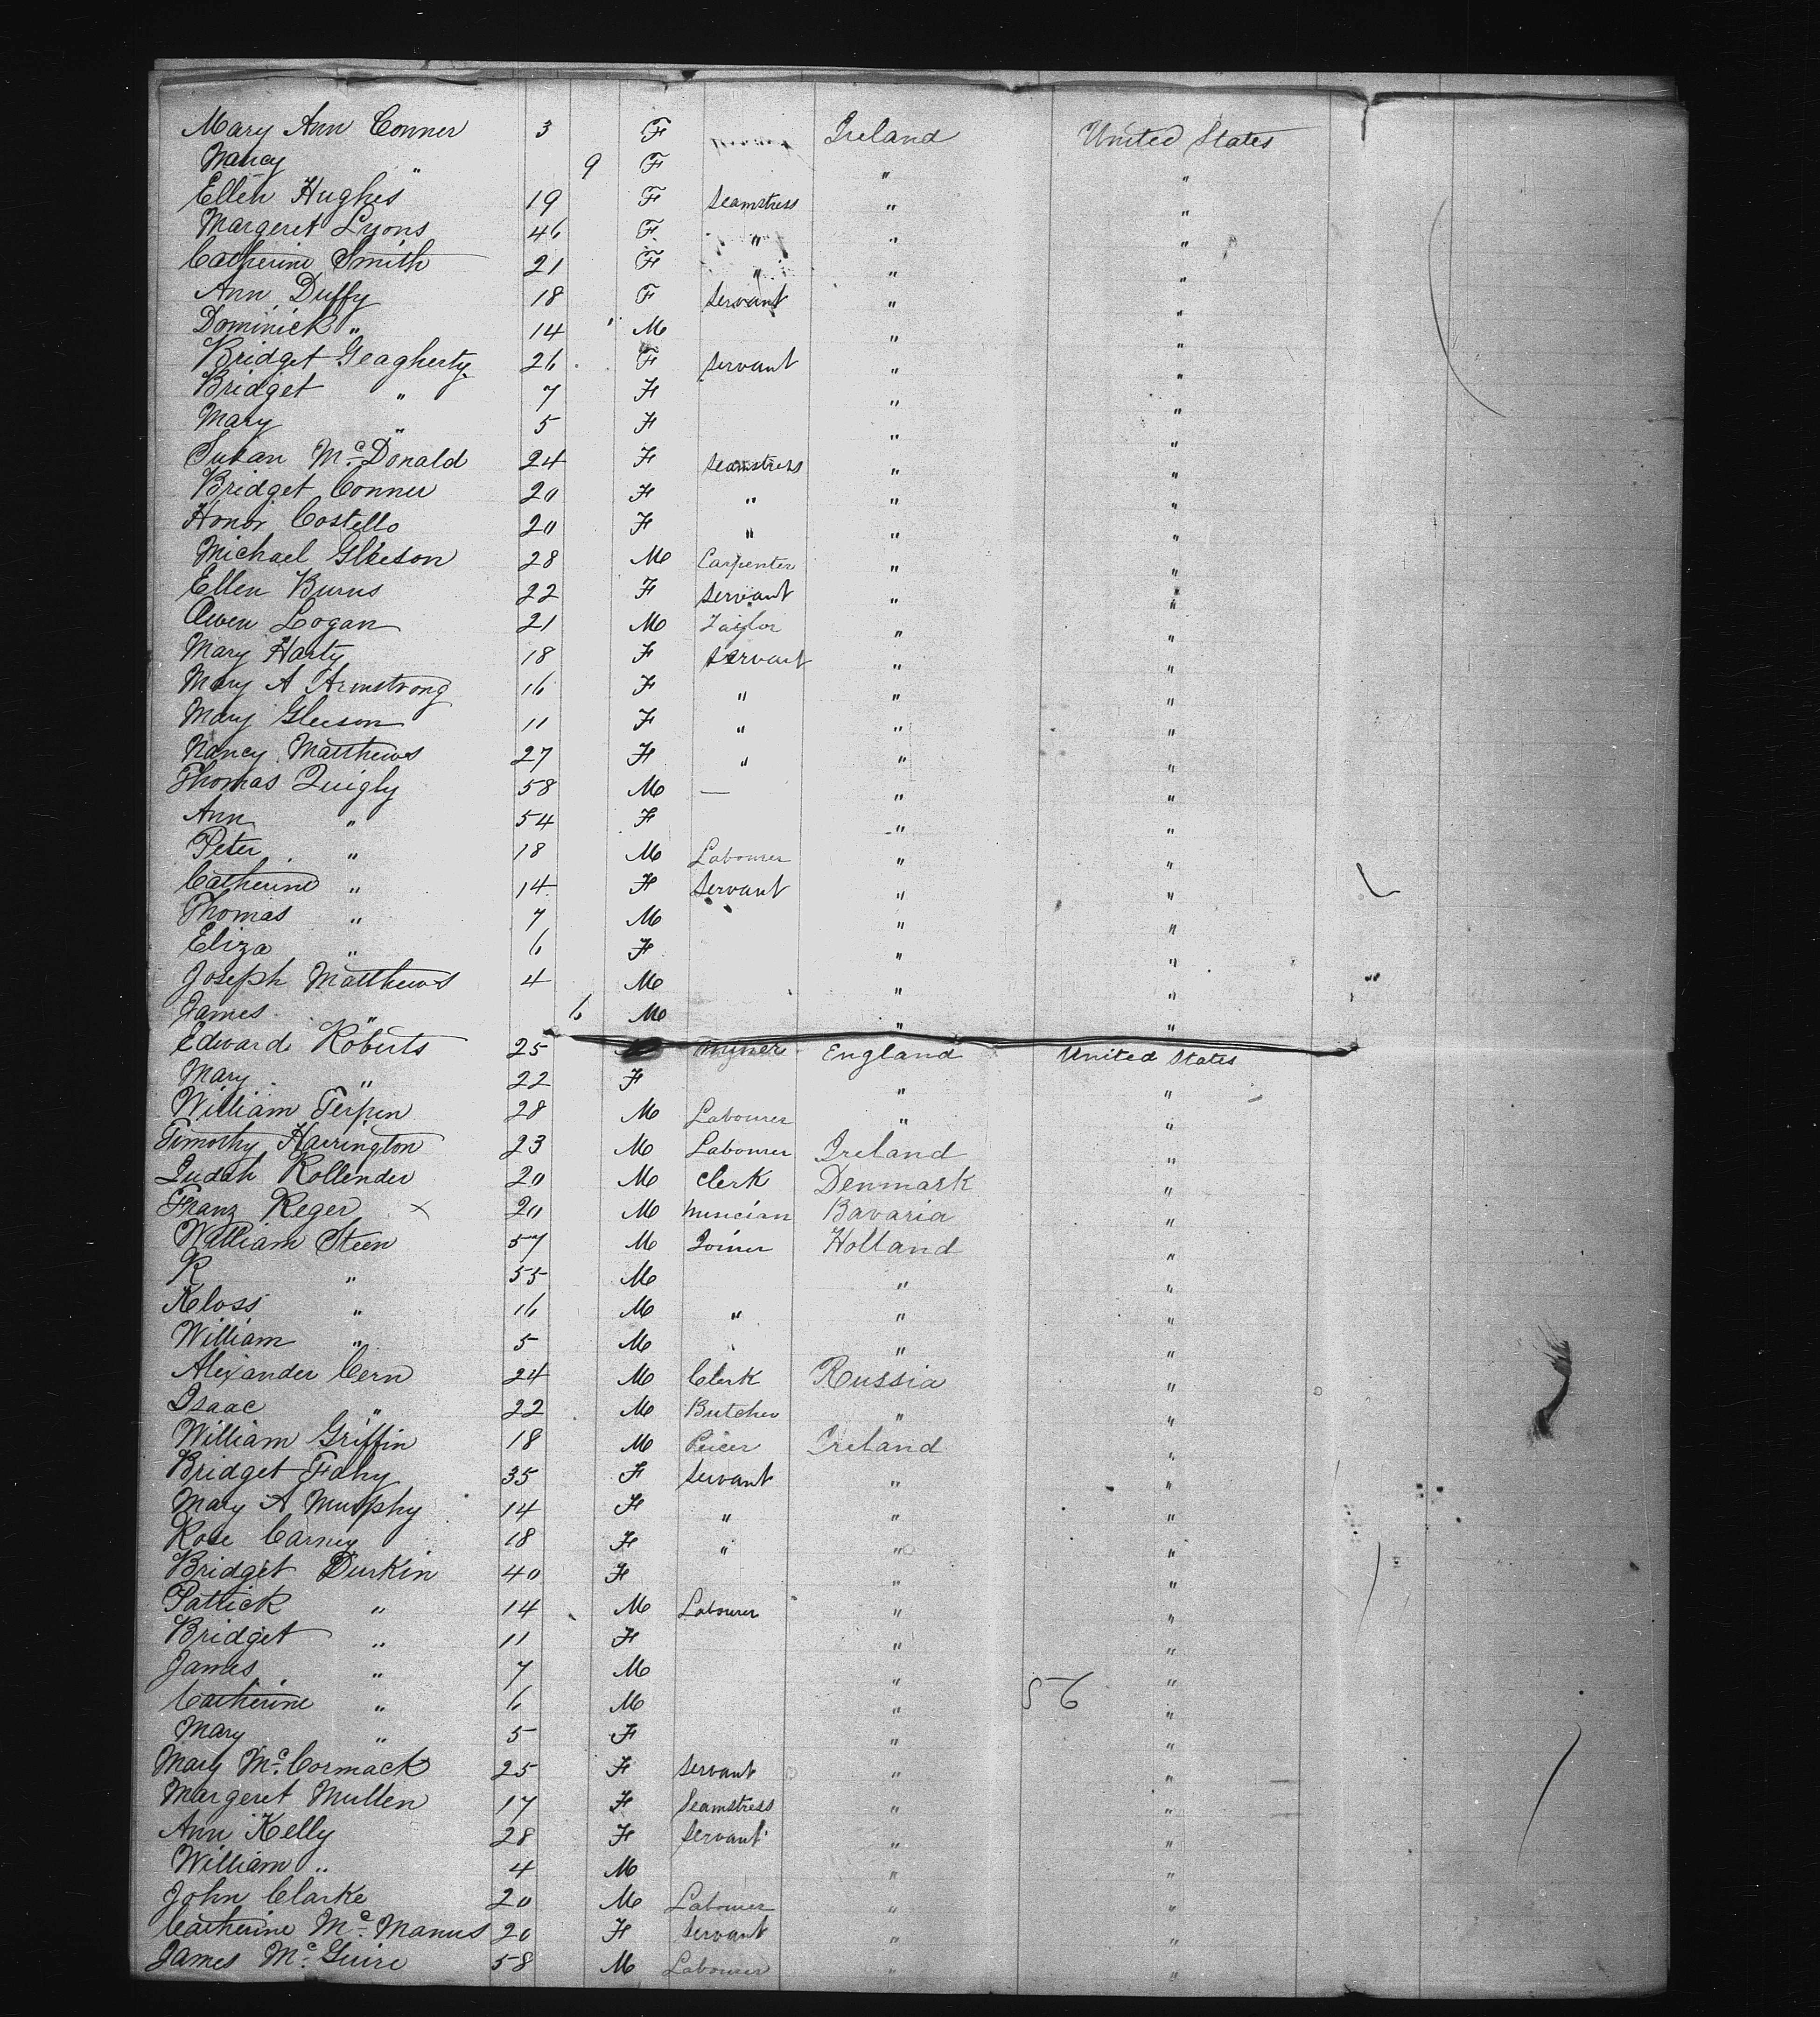 Mary Ann Conner 3 F Ireland United States
Nancy " 9 F " "
Ellen Hughes 19 F Seamstress " "
Margeret Lyons 46 F " " "
Catherine Smith 21 F " " "
Ann Duffy 18 F Servant " "
Dominick " 14 M " "
Bridget Geagherty 26 F Servant " "
Bridget " 7 F " "
Mary " 5 F " "
Susan McDonald 24 F Seamstress " "
Bridget Conner 20 F " " "
Honor Costello 20 F " " "
Michael Gleeson 28 M Carpenter " "
Ellen Burns 22 F Servant " "
Owen Logan 21 M Taylor " "
Mary Harty 18 F Servant " "
Mary A Armstrong 16 F " " "
Mary Gleeson 11 F " " "
Nancy Matthews 27 F " " "
Thomas Quigly 58 M — " "
Ann " 54 F " "
Peter " 18 M Labourer " "
Catherine " 14 F Servant " "
Thomas " 7 M " "
Eliza " 6 F " "
Joseph Matthews 4 M " " "
James " 6 M " "
Edward Roberts 25 Miner England United States
Mary " 22 F " "
William Terpin 28 M Labourer " "
Timothy Harrington 23 M Labourer Ireland "
Judah Rollender 20 M Clerk Denmark "
Franz Reger x 20 M Musician Bavaria "
William Steen 57 M Joiner Holland "
R " 55 M " "
Kloss " 16 M " " "
William " 5 M " "
Alexander Cern 24 M Clerk Russia "
Isaac " 22 M Butcher " "
William Griffin 18 M Peicer Ireland "
Bridget Fahy 35 F Servant " "
Mary A Murphy 14 F " " "
Rose Carney 18 F " " "
Bridget Durkin 40 F " "
Patrick " 14 M Labourer " "
Bridget " 11 F " "
James " 7 M " "
Catherine " 6 M " 56 "
Mary " 5 F " "
Mary McCormack 25 F Servant " "
Margeret Mullen 17 F Seamstress " "
Ann Kelly 28 F Servant " "
William " 4 M " "
John Clarke 20 M Labourer " "
Catherine McManus 20 F Servant " "
James McGuire 58 M Labourer " "